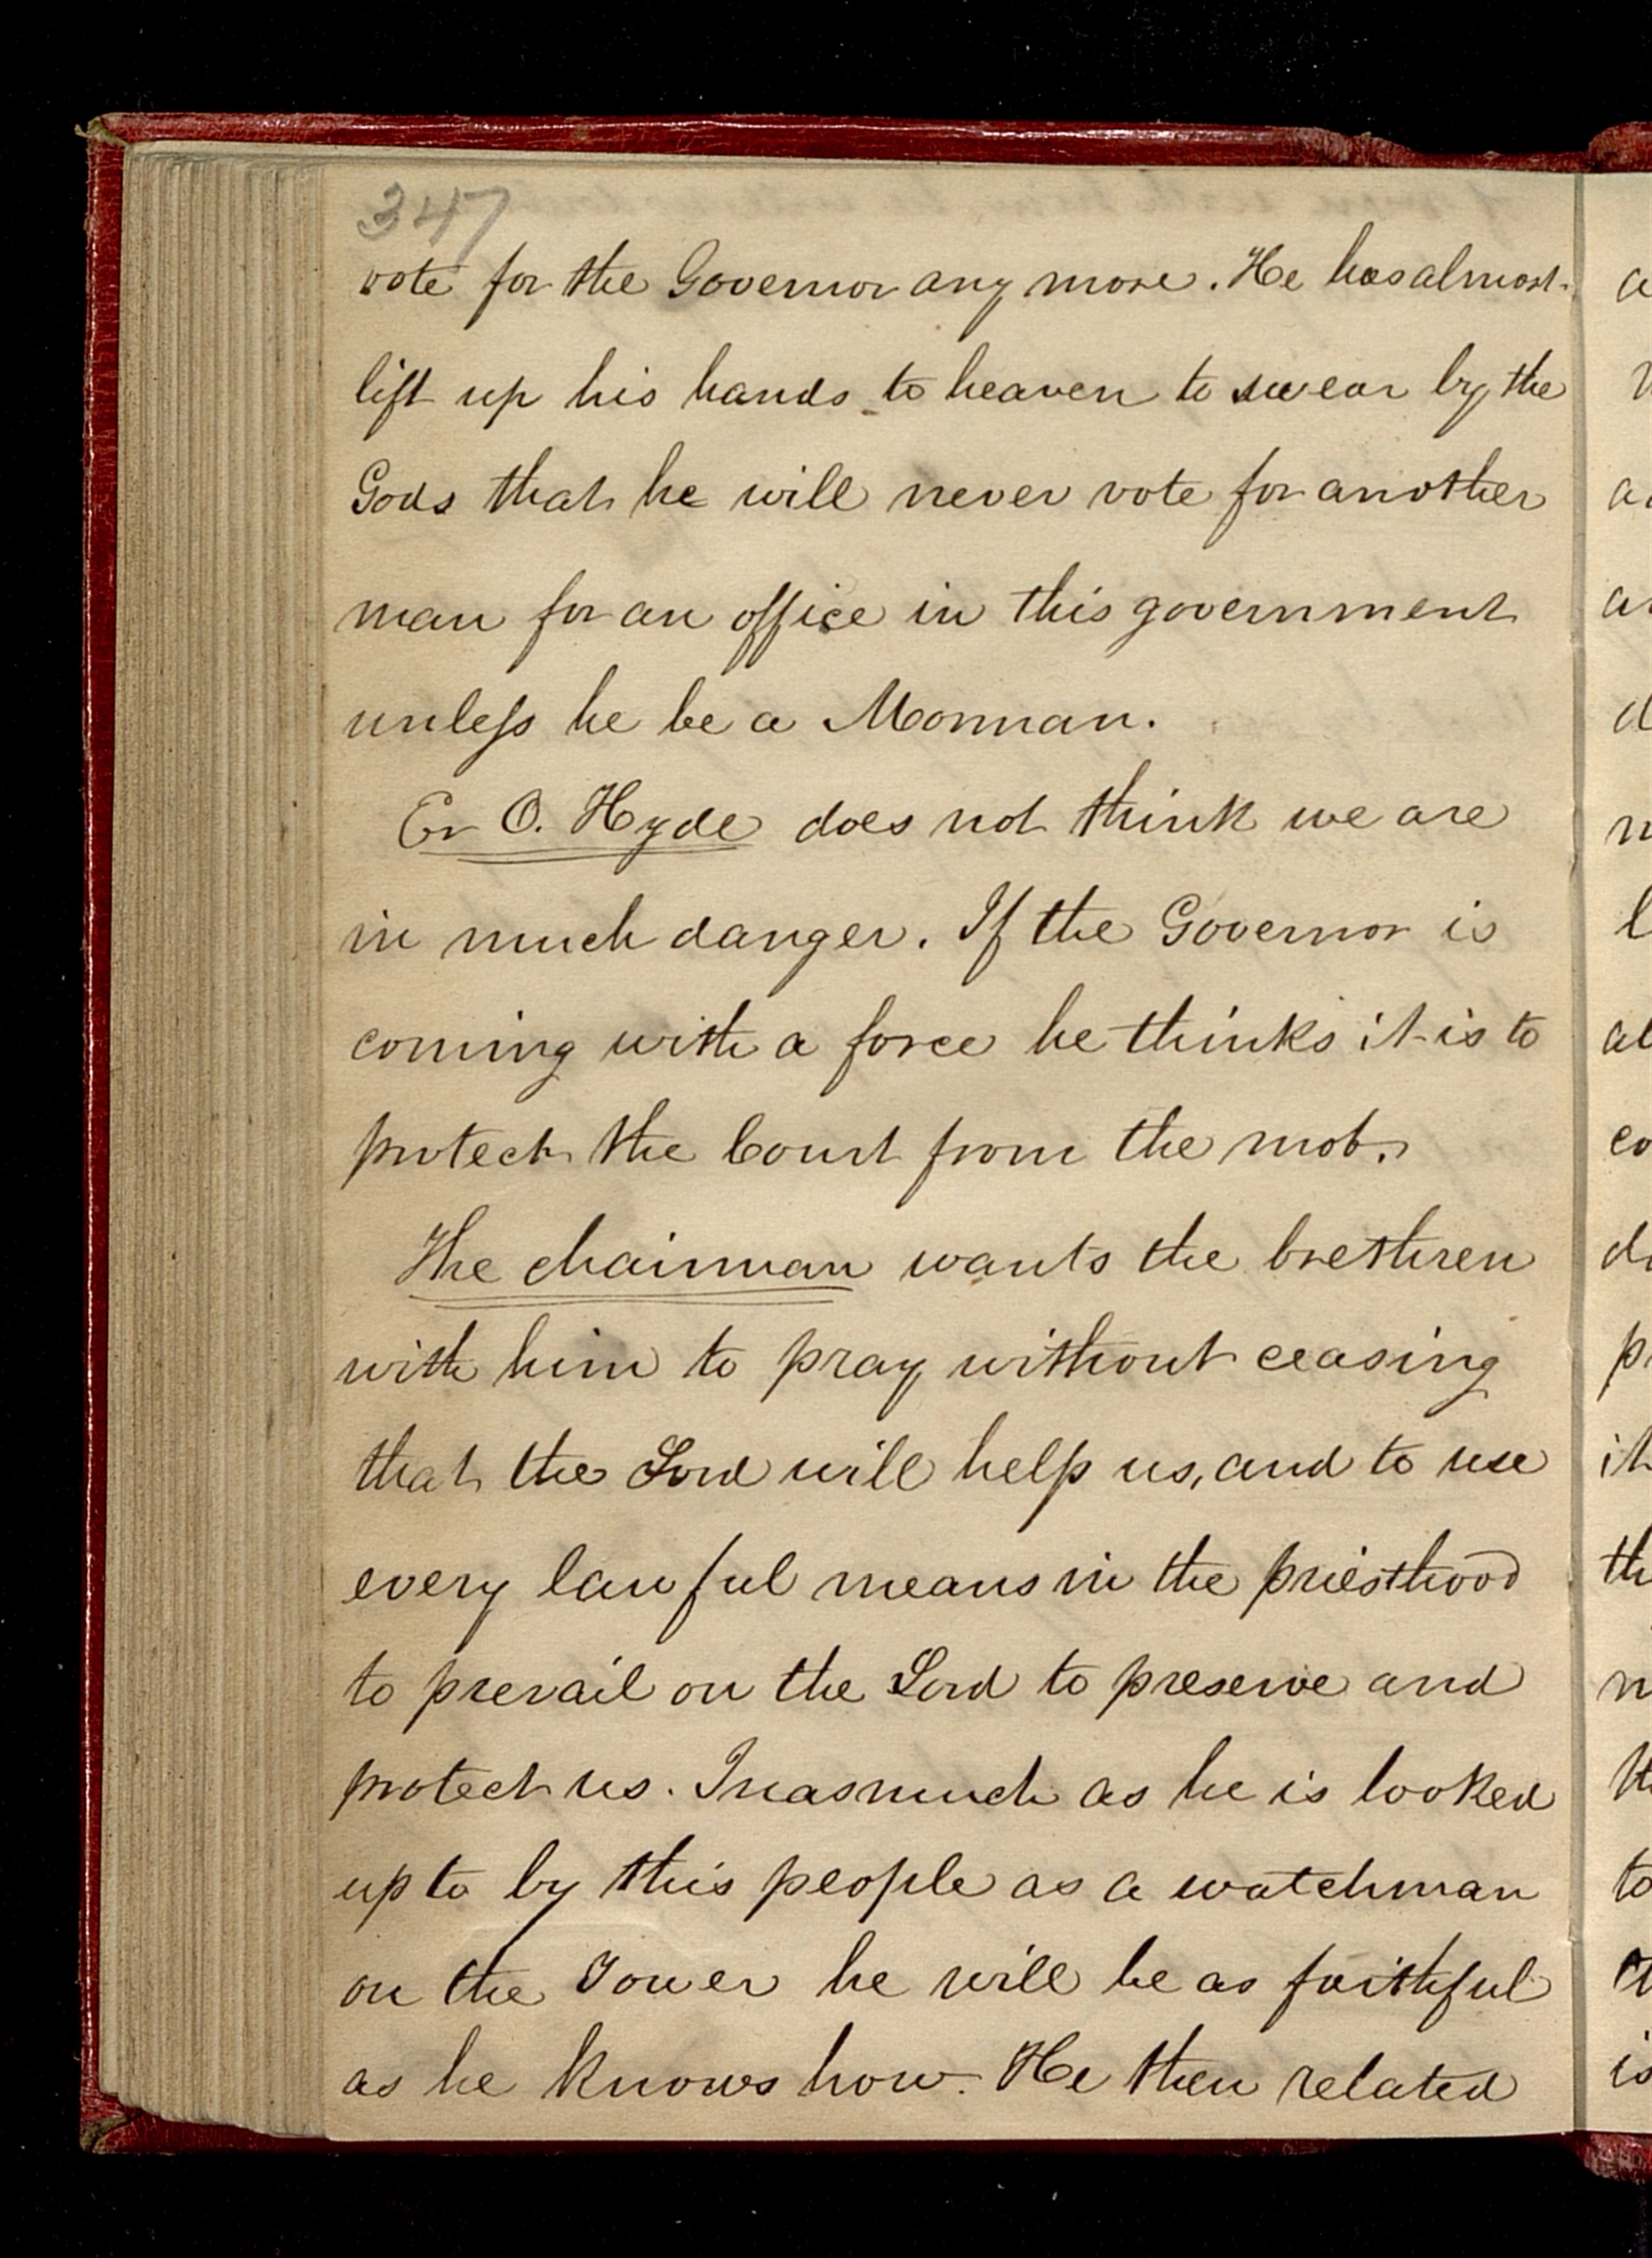 347
vote for the Governor any more. He has almost
lift up his hands to heaven to swear by the
Gods that he will never vote for another
man for an office in this government
unless he be a Morman.
Er O. Hyde does not think we are
in much danger. If the Governor is
coming with a force he thinks it is to
protect the Court from the mob.
The chairman wants the brethren
with him to pray without ceasing
that the Lord will help us, and to use
every lawful means in the priesthood
to prevail on the Lord to preserve and
protect us. Inasmuch as he is looked
up to by this people as a watchman
on the Tower he will be as faithful
as he knows how. He then related